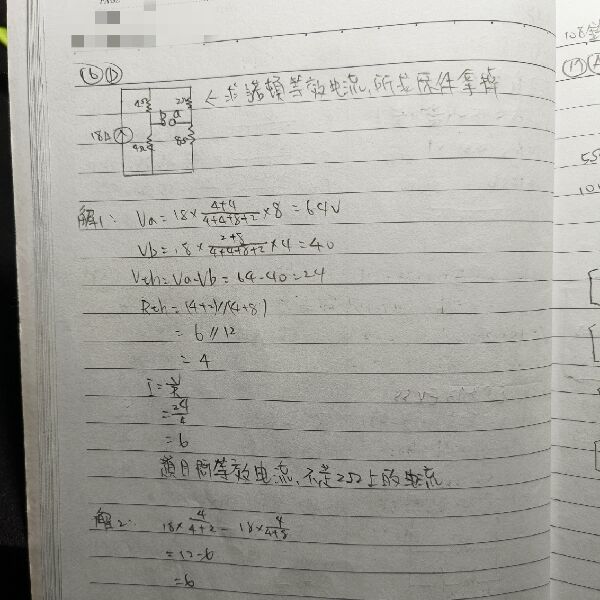 (16) ①
4Ω 2Ω
b a
18A 4Ω 8Ω
← 求諾頓等效电流,所求原件拿掉
解1: Va = 18 × (4+4)/(4+4+8+2) × 8 = 64V
Vb = 18 × (2+8)/(4+4+8+2) × 4 = 40
Vth = Va-Vb = 64-40 = 24
Rth = (4+2)//(4+8)
= 6//12
= 4
I = V/R
= 24/4
= 6
等效电流,不是2Ω上的电流
解2: 18×4/(4+2) - 18×4/(4+8)
= 12-6
= 6
108
(17)
55
10